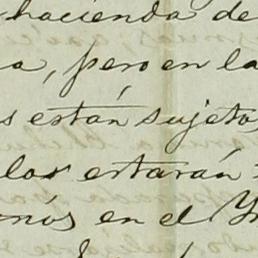 hacienda de
a, pero en la
s están sujeto
los estarán
nós en el